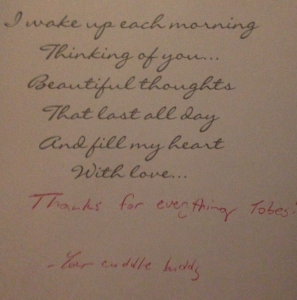 I wake up each morning
Thinking of you...
Beautiful thoughts
That last all day
And fill my heart
With love...
Thanks for everything Tobes!
-Your cuddle buddy